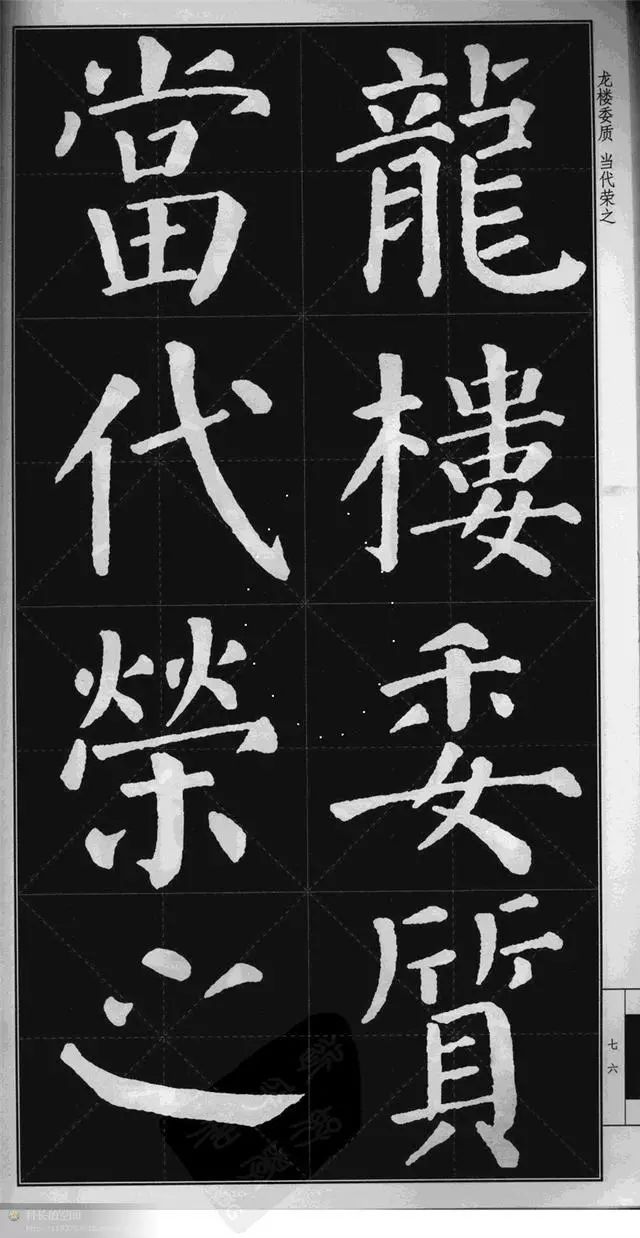 龍樓委質
當代榮之
龙楼委质 当代荣之
七六